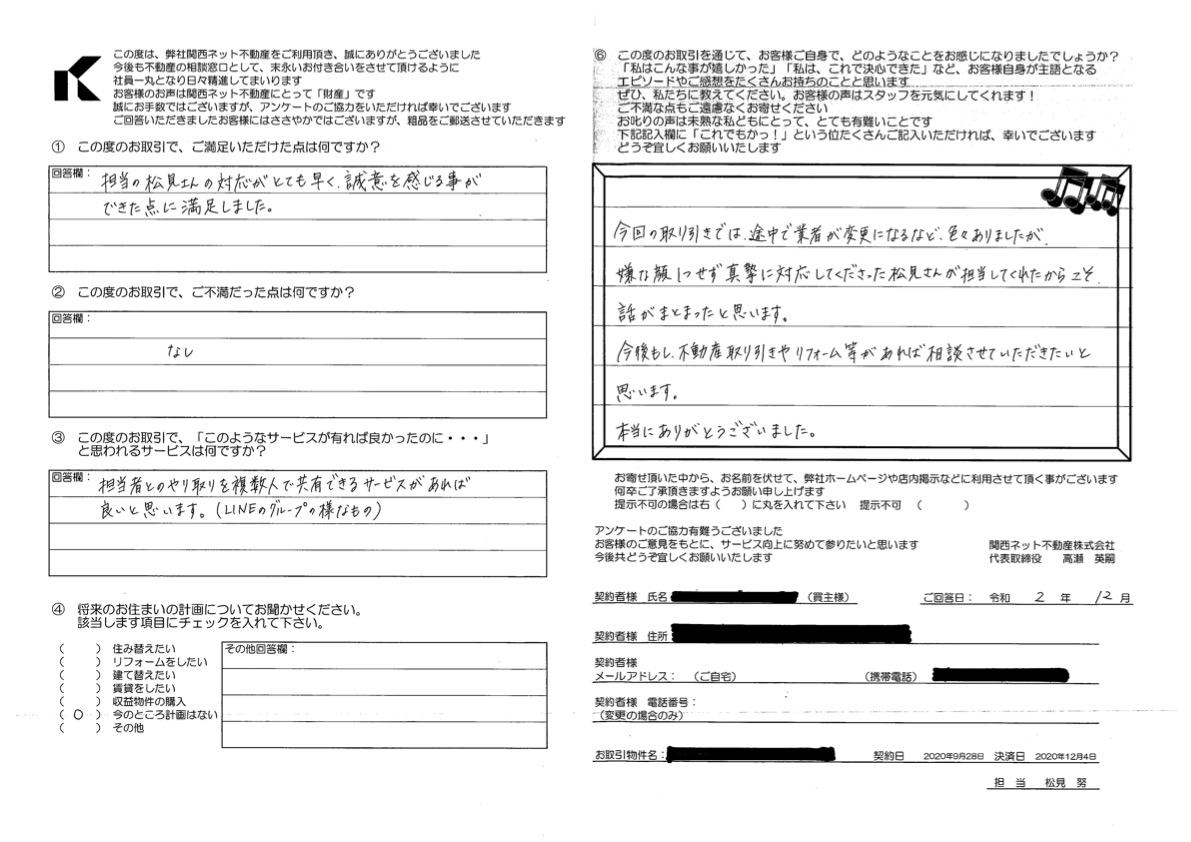 この度は、弊社関西ネット不動産をご利用頂き、誠にありがとうございました
今後も不動産の相談窓口として、末永いお付き合いをさせて頂けるように
社員一丸となり日々精進してまいります
お客様のお声は関西ネット不動産にとって「財産」です
誠にお手数ではございますが、アンケートのご協力をいただければ幸いでございます
ご回答いただきましたお客様にはささやかではございますが、粗品をご郵送させていただきます
① この度のお取引で、ご満足いただけた点は何ですか？
回答欄：
担当の松見さんの対応がとても早く、誠意を感じる事が
できた点に満足しました。
② この度のお取引で、ご不満だった点は何ですか？
回答欄：
なし
③ この度のお取引で、「このようなサービスが有れば良かったのに・・・」
と思われるサービスは何ですか？
回答欄：
担当者とのやり取りを複数人で共有できるサービスがあれば
良いと思います。(LINEのグループの様なもの)
④ 将来のお住まいの計画についてお聞かせください。
該当します項目にチェックを入れて下さい。
（　　）住み替えたい
（　　）リフォームをしたい
（　　）建て替えたい
（　　）賃貸をしたい
（　　）収益物件の購入
（ ○ ）今のところ計画はない
（　　）その他
その他回答欄：
⑥ この度のお取引を通じて、お客様ご自身で、どのようなことをお感じになりましたでしょうか？
「私はこんな事が嬉しかった」「私は、これで決心できた」など、お客様自身が主語となる
エピソードやご感想をたくさんお持ちのことと思います
ぜひ、私たちに教えてください。お客様の声はスタッフを元気にしてくれます！
ご不満な点もご遠慮なくお寄せください
お叱りの声は未熟な私どもにとって、とても有難いことです
下記記入欄に「これでもかっ！」という位たくさんご記入いただければ、幸いでございます
どうぞ宜しくお願いいたします
今回の取り引きでは、途中で業者が変更になるなど、色々ありましたが、
嫌な顔1つせず真摯に対応してくださった松見さんが担当してくれたからこそ、
話がまとまったと思います。
今後もし、不動産取り引きやリフォーム等があれば相談させていただきたいと
思います。
本当にありがとうございました。
お寄せ頂いた中から、お名前を伏せて、弊社ホームページや店内掲示などに利用させて頂く事がございます
何卒ご了承頂きますようお願い申し上げます
提示不可の場合は右（　　）に丸を入れて下さい　提示不可　（　　　）
アンケートのご協力有難うございました
お客様のご意見をもとに、サービス向上に努めて参りたいと思います
今後共どうぞ宜しくお願いいたします
関西ネット不動産株式会社
代表取締役　高瀬　英嗣
契約者様　氏名　（買主様）　ご回答日：　令和　2　年　12　月
契約者様　住所
契約者様
メールアドレス：　（ご自宅）　（携帯電話）
契約者様　電話番号：
（変更の場合のみ）
お取引物件名：　契約日　2020年9月28日　決済日　2020年12月4日
担　当　松見　努